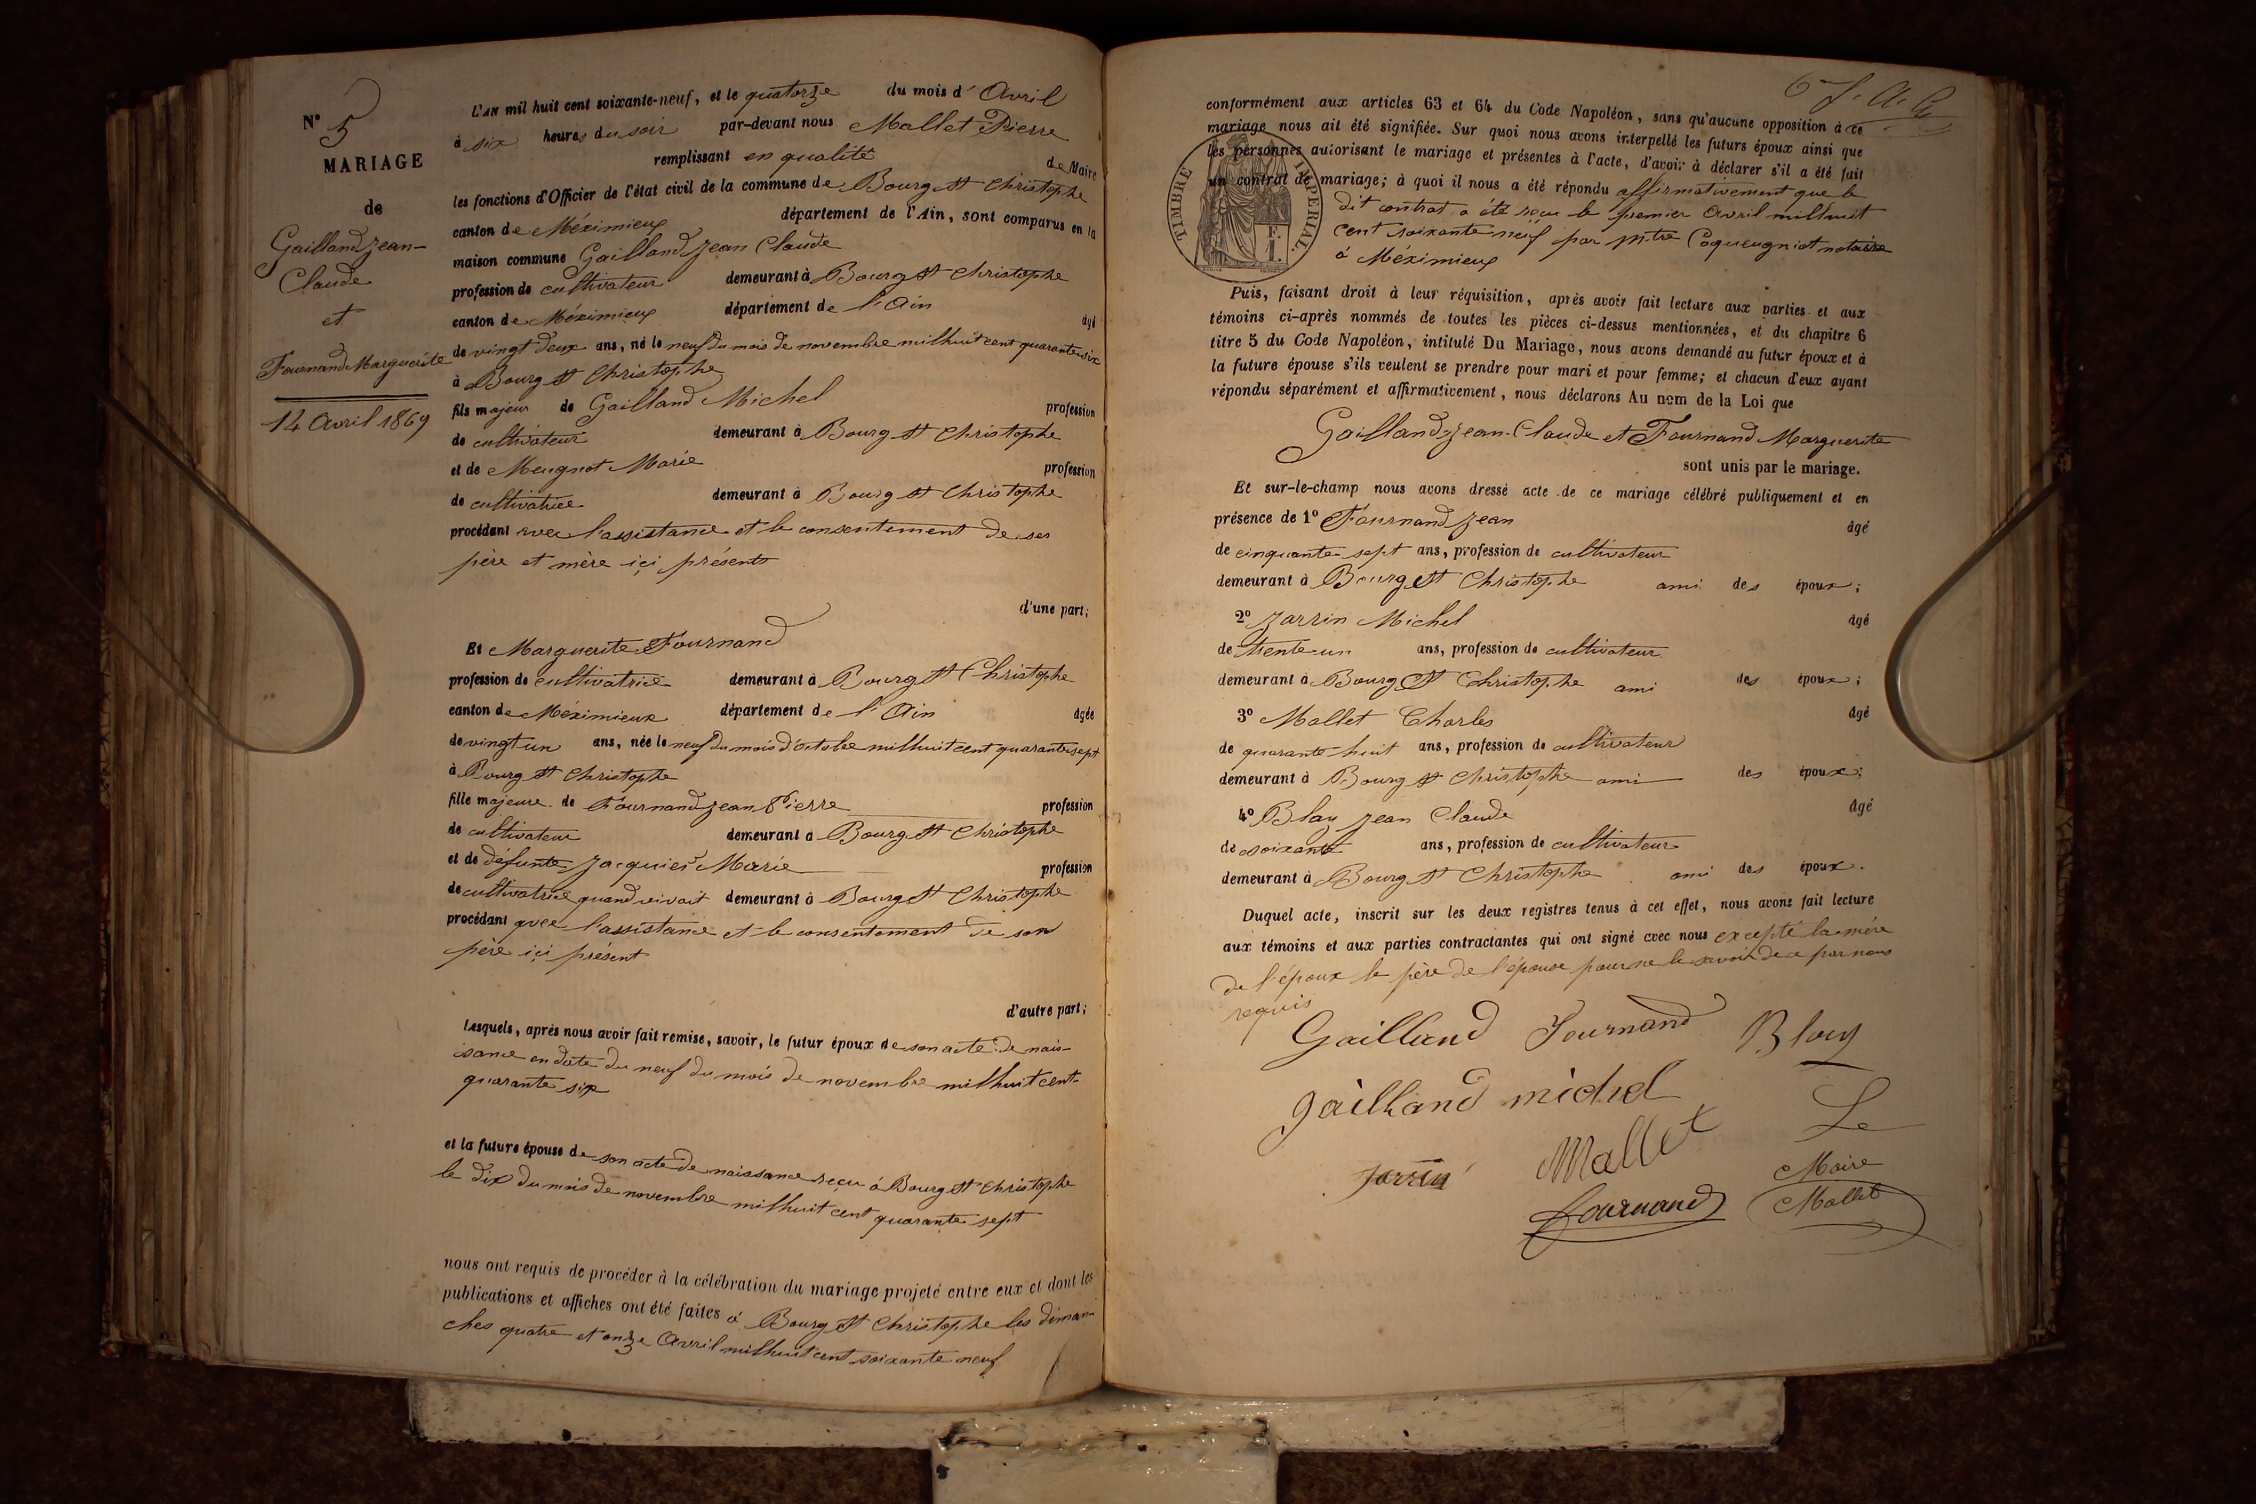 N° 5
MARIAGE
de
Gailland Jean-
Claude
et
Fournand Marguerite
14 Avril 1869
L'AN mil huit cent soixante-neuf, et le quatorze du mois d' Avril
à six heures du soir par-devant nous Mallet Pierre
remplissant en qualité de Maire
les fonctions d'Officier de l'état civil de la commune de Bourg St Christophe
canton de Méximieux département de l'Ain, sont comparus en la
maison commune Gailland Jean Claude
profession de cultivateur demeurant à Bourg St Christophe
canton de Méximieux département de l'Ain âgé
de vingt deux ans, né le neuf du mois de novembre milhuit cent quarante six
à Bourg St Christophe
fils majeur de Gailland Michel profession
de cultivateur demeurant à Bourg St Christophe
et de Meugnot Marie profession
de cultivatrice demeurant à Bourg St Christophe
procédant avec l'assistance et le consentement de ses
père et mère içi présents
d'une part;
Et Marguerite Fournand
profession de cultivatrice demeurant à Bourg St Christophe
canton de Méximieux département de l'Ain âgée
de vingt un ans, née le neuf du mois d'octobre milhuit cent quarante sept
à Bourg St Christophe
fille majeure de Fournand Jean Pierre profession
de cultivateur demeurant à Bourg St Christophe
et de défunte Jacquier Marie profession
de cultivatrice quand vivait demeurant à Bourg St Christophe
procédant avec l'assistance et le consentement de son
père içi présent
d'autre part;
Lesquels, après nous avoir fait remise, savoir, le futur époux de son acte de nais-
sance en date du neuf du mois de novembre milhuit cent-
quarante six
et la future épouse de son acte de naissance reçu à Bourg St Christophe
le dix du mois de novembre milhuit cent quarante sept
nous ont requis de procéder à la célébration du mariage projeté entre eux et dont les
publications et affiches ont été faites à Bourg St Christophe les diman-
ches quatre et onze Avril milhuit cent soixante neuf
conformément aux articles 63 et 64 du Code Napoléon, sans qu'aucune opposition à ce
mariage nous ait été signifiée. Sur quoi nous avons interpellé les futurs époux ainsi que
les personnes autorisant le mariage et présentes à l'acte, d'avoir à déclarer s'il a été fait
un contrat de mariage; à quoi il nous a été répondu affirmativement que le
dit contrat a été reçu le premier Avril milhuit
cent soixante neuf par Mtre Coqueugniot notaire
à Méximieux
TIMBRE IMPERIAL.
Puis, faisant droit à leur réquisition, après avoir fait lecture aux parties et aux
témoins ci-après nommés de toutes les pièces ci-dessus mentionnées, et du chapitre 6
titre 5 du Code Napoléon, intitulé Du Mariage, nous avons demandé au futur époux et à
la future épouse s'ils veulent se prendre pour mari et pour femme; et chacun d'eux ayant
répondu séparément et affirmativement, nous déclarons Au nom de la Loi que
Gailland Jean-Claude et Fournand Marguerite
sont unis par le mariage.
Et sur-le-champ nous avons dressé acte de ce mariage célébré publiquement et en
présence de 1° Fournand Jean âgé
de cinquante sept ans, profession de cultivateur
demeurant à Bourg St Christophe ami des époux;
2° Jarrin Michel âgé
de trente un ans, profession de cultivateur
demeurant à Bourg St Christophe ami des époux;
3° Mallet Charles âgé
de quarante huit ans, profession de cultivateur
demeurant à Bourg St Christophe ami des époux;
4° Blay Jean Claude âgé
de soixante ans, profession de cultivateur
demeurant à Bourg St Christophe ami des époux.
Duquel acte, inscrit sur les deux registres tenus à cet effet, nous avons fait lecture
aux témoins et aux parties contractantes qui ont signé avec nous excepté la mère
de l'époux le père de l'épouse pour ne le savoir de ce par nous
requis
Gailland Fournand Blay
gailland michel
Le
Mallet
Maire
Jarrin
Mallet
fournand